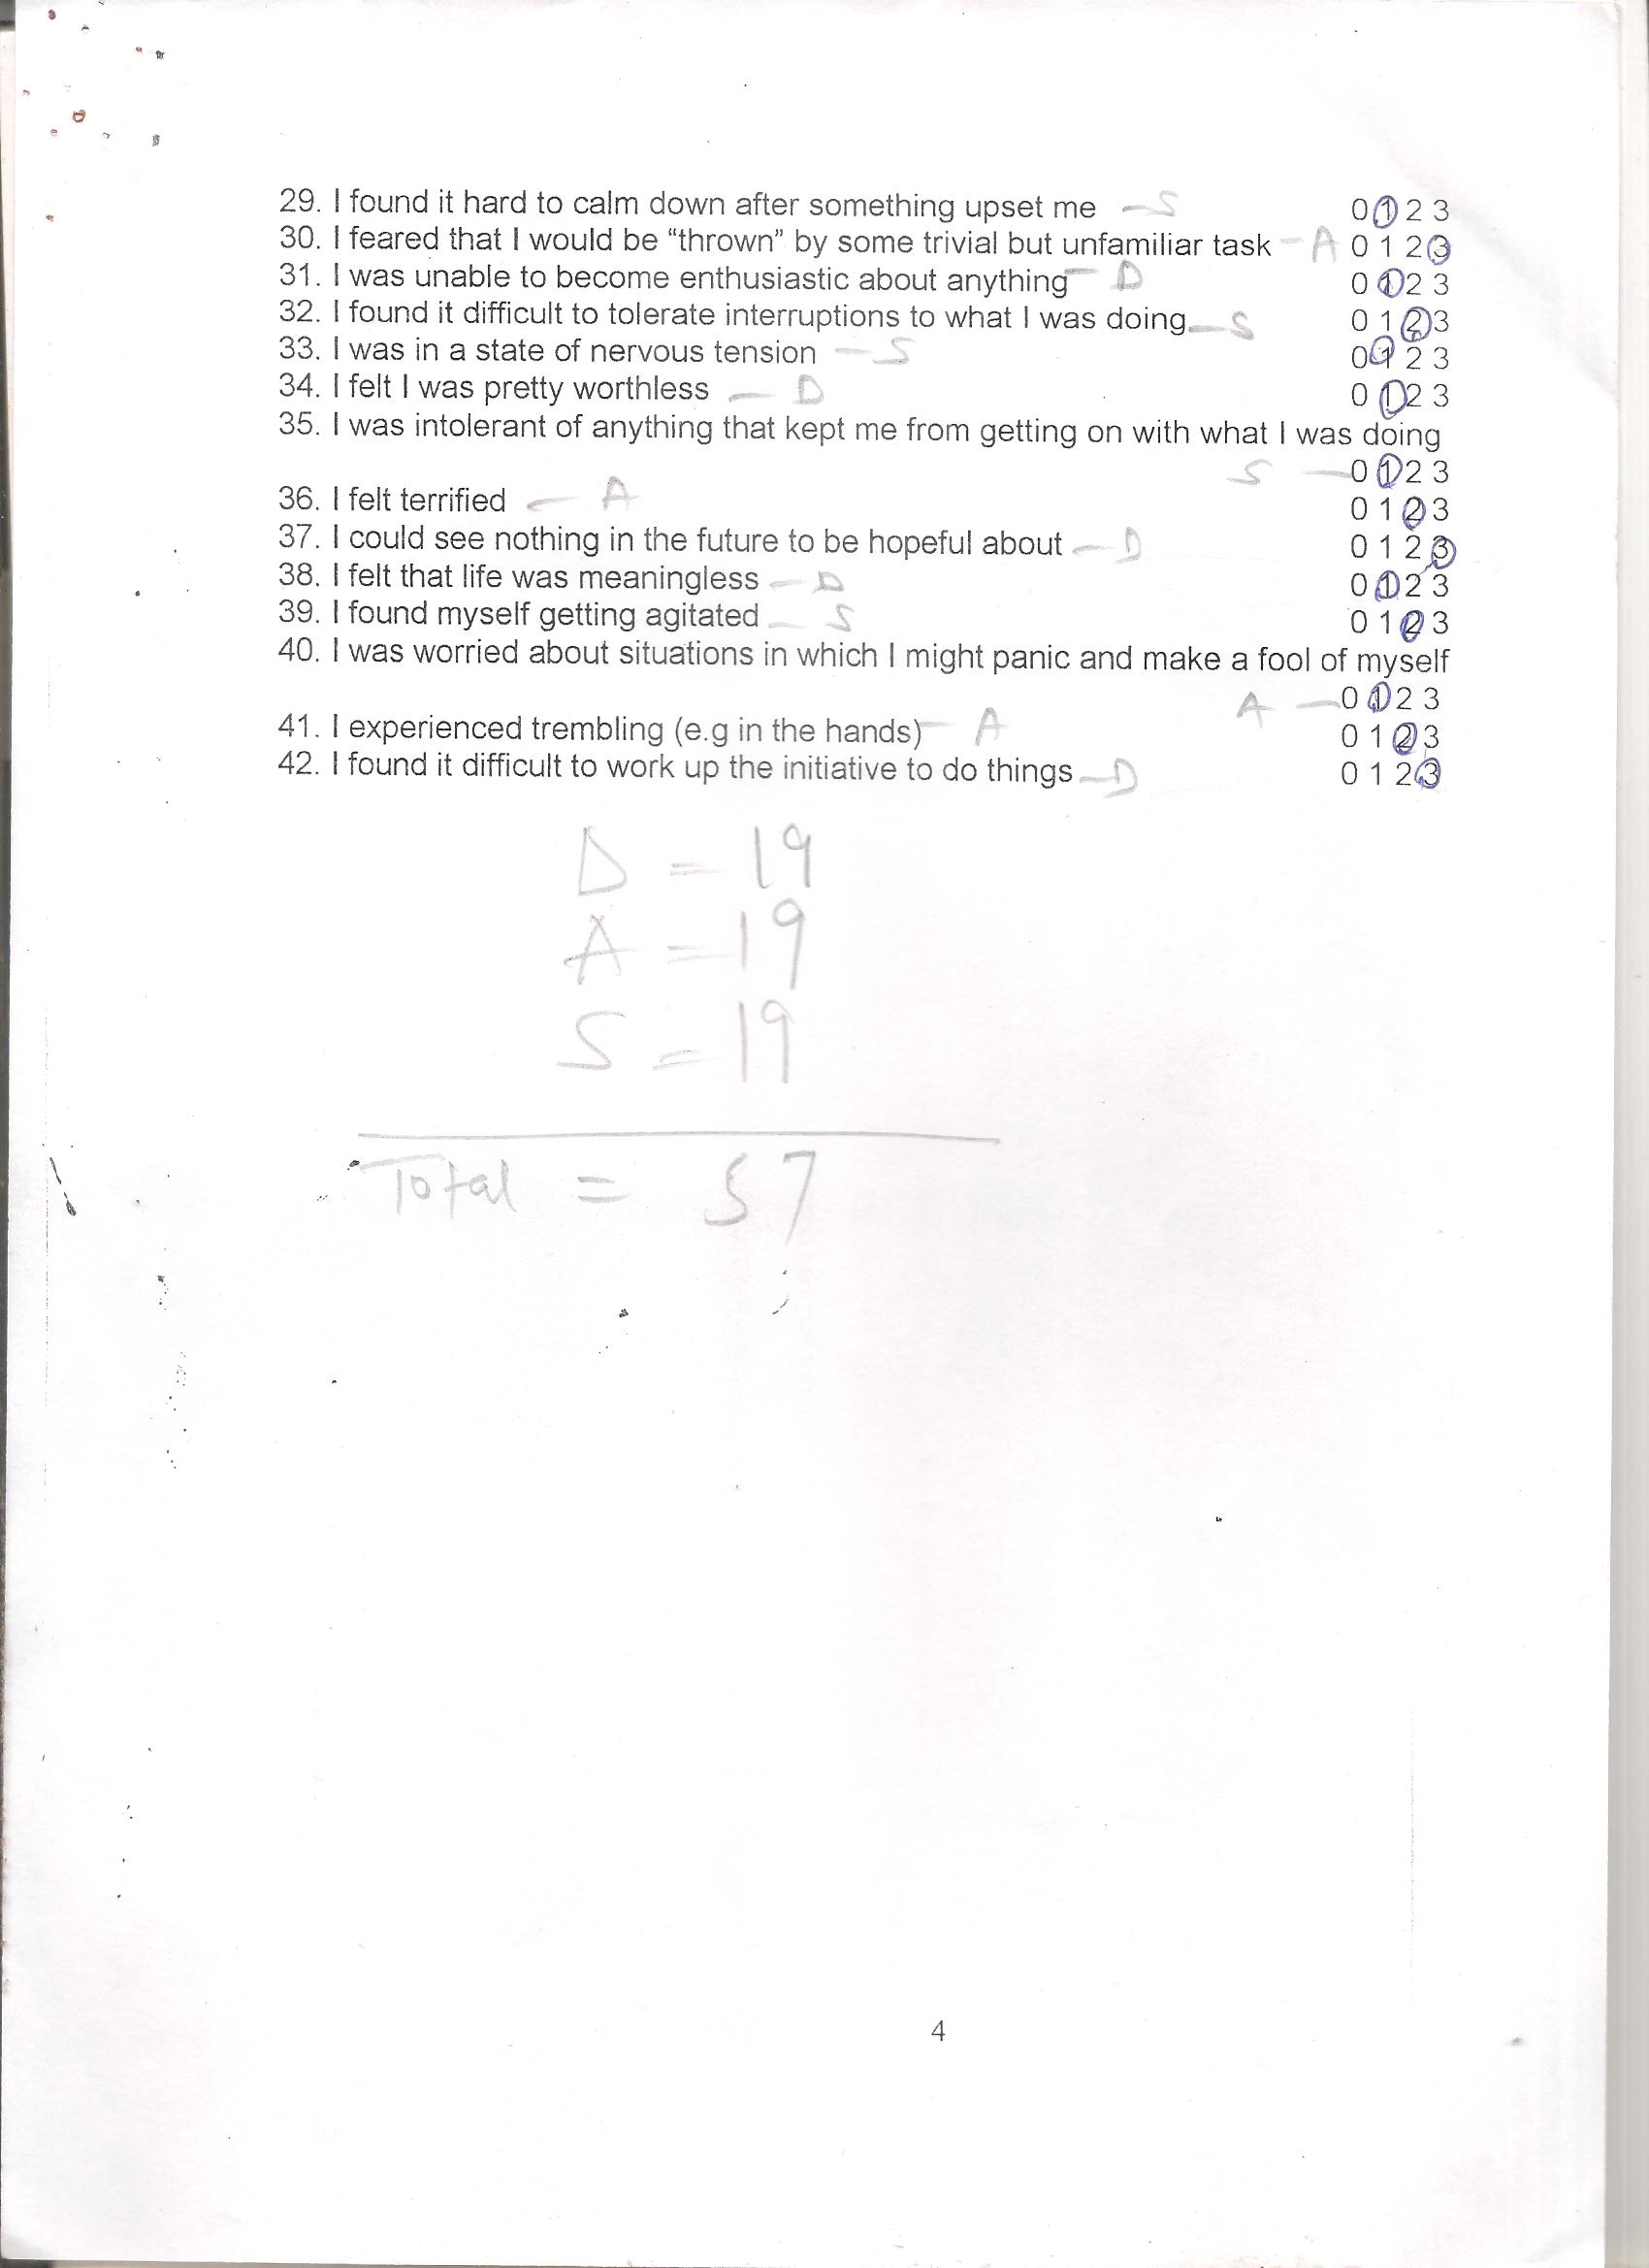 29. I found it hard to calm down after something upset me — S 0 1 2 3
30. I feared that I would be “thrown” by some trivial but unfamiliar task – A 0 1 2 3
31. I was unable to become enthusiastic about anything – D 0 1 2 3
32. I found it difficult to tolerate interruptions to what I was doing. — S 0 1 2 3
33. I was in a state of nervous tension — S 0 1 2 3
34. I felt I was pretty worthless — D 0 1 2 3
35. I was intolerant of anything that kept me from getting on with what I was doing
S — 0 1 2 3
36. I felt terrified — A 0 1 2 3
37. I could see nothing in the future to be hopeful about — D 0 1 2 3
38. I felt that life was meaningless — D 0 1 2 3
39. I found myself getting agitated — S 0 1 2 3
40. I was worried about situations in which I might panic and make a fool of myself
A — 0 1 2 3
41. I experienced trembling (e.g in the hands) – A 0 1 2 3
42. I found it difficult to work up the initiative to do things — D 0 1 2 3
D = 19
A = 19
S = 19
Total = 57
4